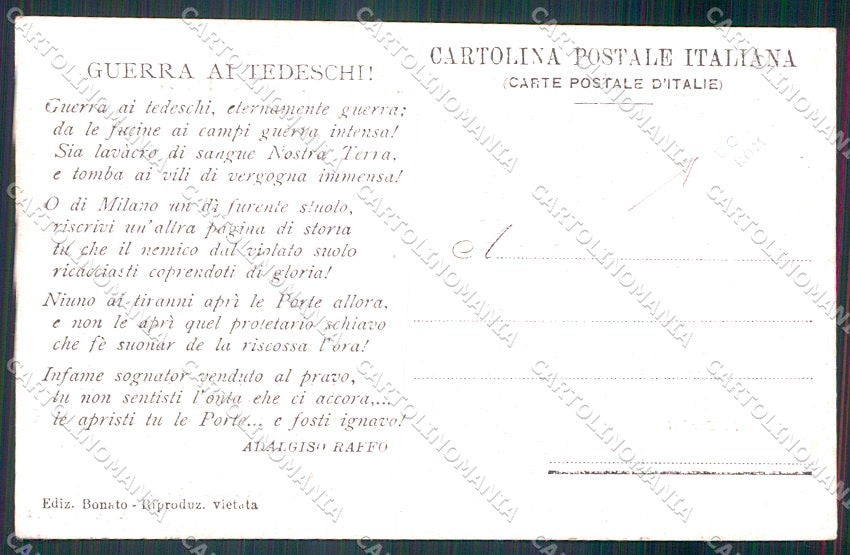 GUERRA AI TEDESCHI!
Guerra ai tedeschi, eternamente guerra;
da le fucine ai campi guerra intensa!
Sia lavacro di sangue Nostra Terra,
e tomba ai vili di vergogna immensa!
O di Milano un dì furente stuolo,
riscrivi un'altra pagina di storia
tu che il nemico dal violato suolo
ricacciasti coprendoti di gloria!
Niuno ai tiranni aprì le Porte allora,
e non le aprì quel proletario schiavo
che fè suonar de la riscossa l'ora!
Infame sognator venduto al pravo,
tu non sentisti l'onta che ci accora,...
le apristi tu le Porte... e fosti ignavo!
ADALGISO RAFFO
Ediz. Bonato - Riproduz. vietata
CARTOLINA POSTALE ITALIANA
(CARTE POSTALE D'ITALIE)
A
CARTOLINOMANIA